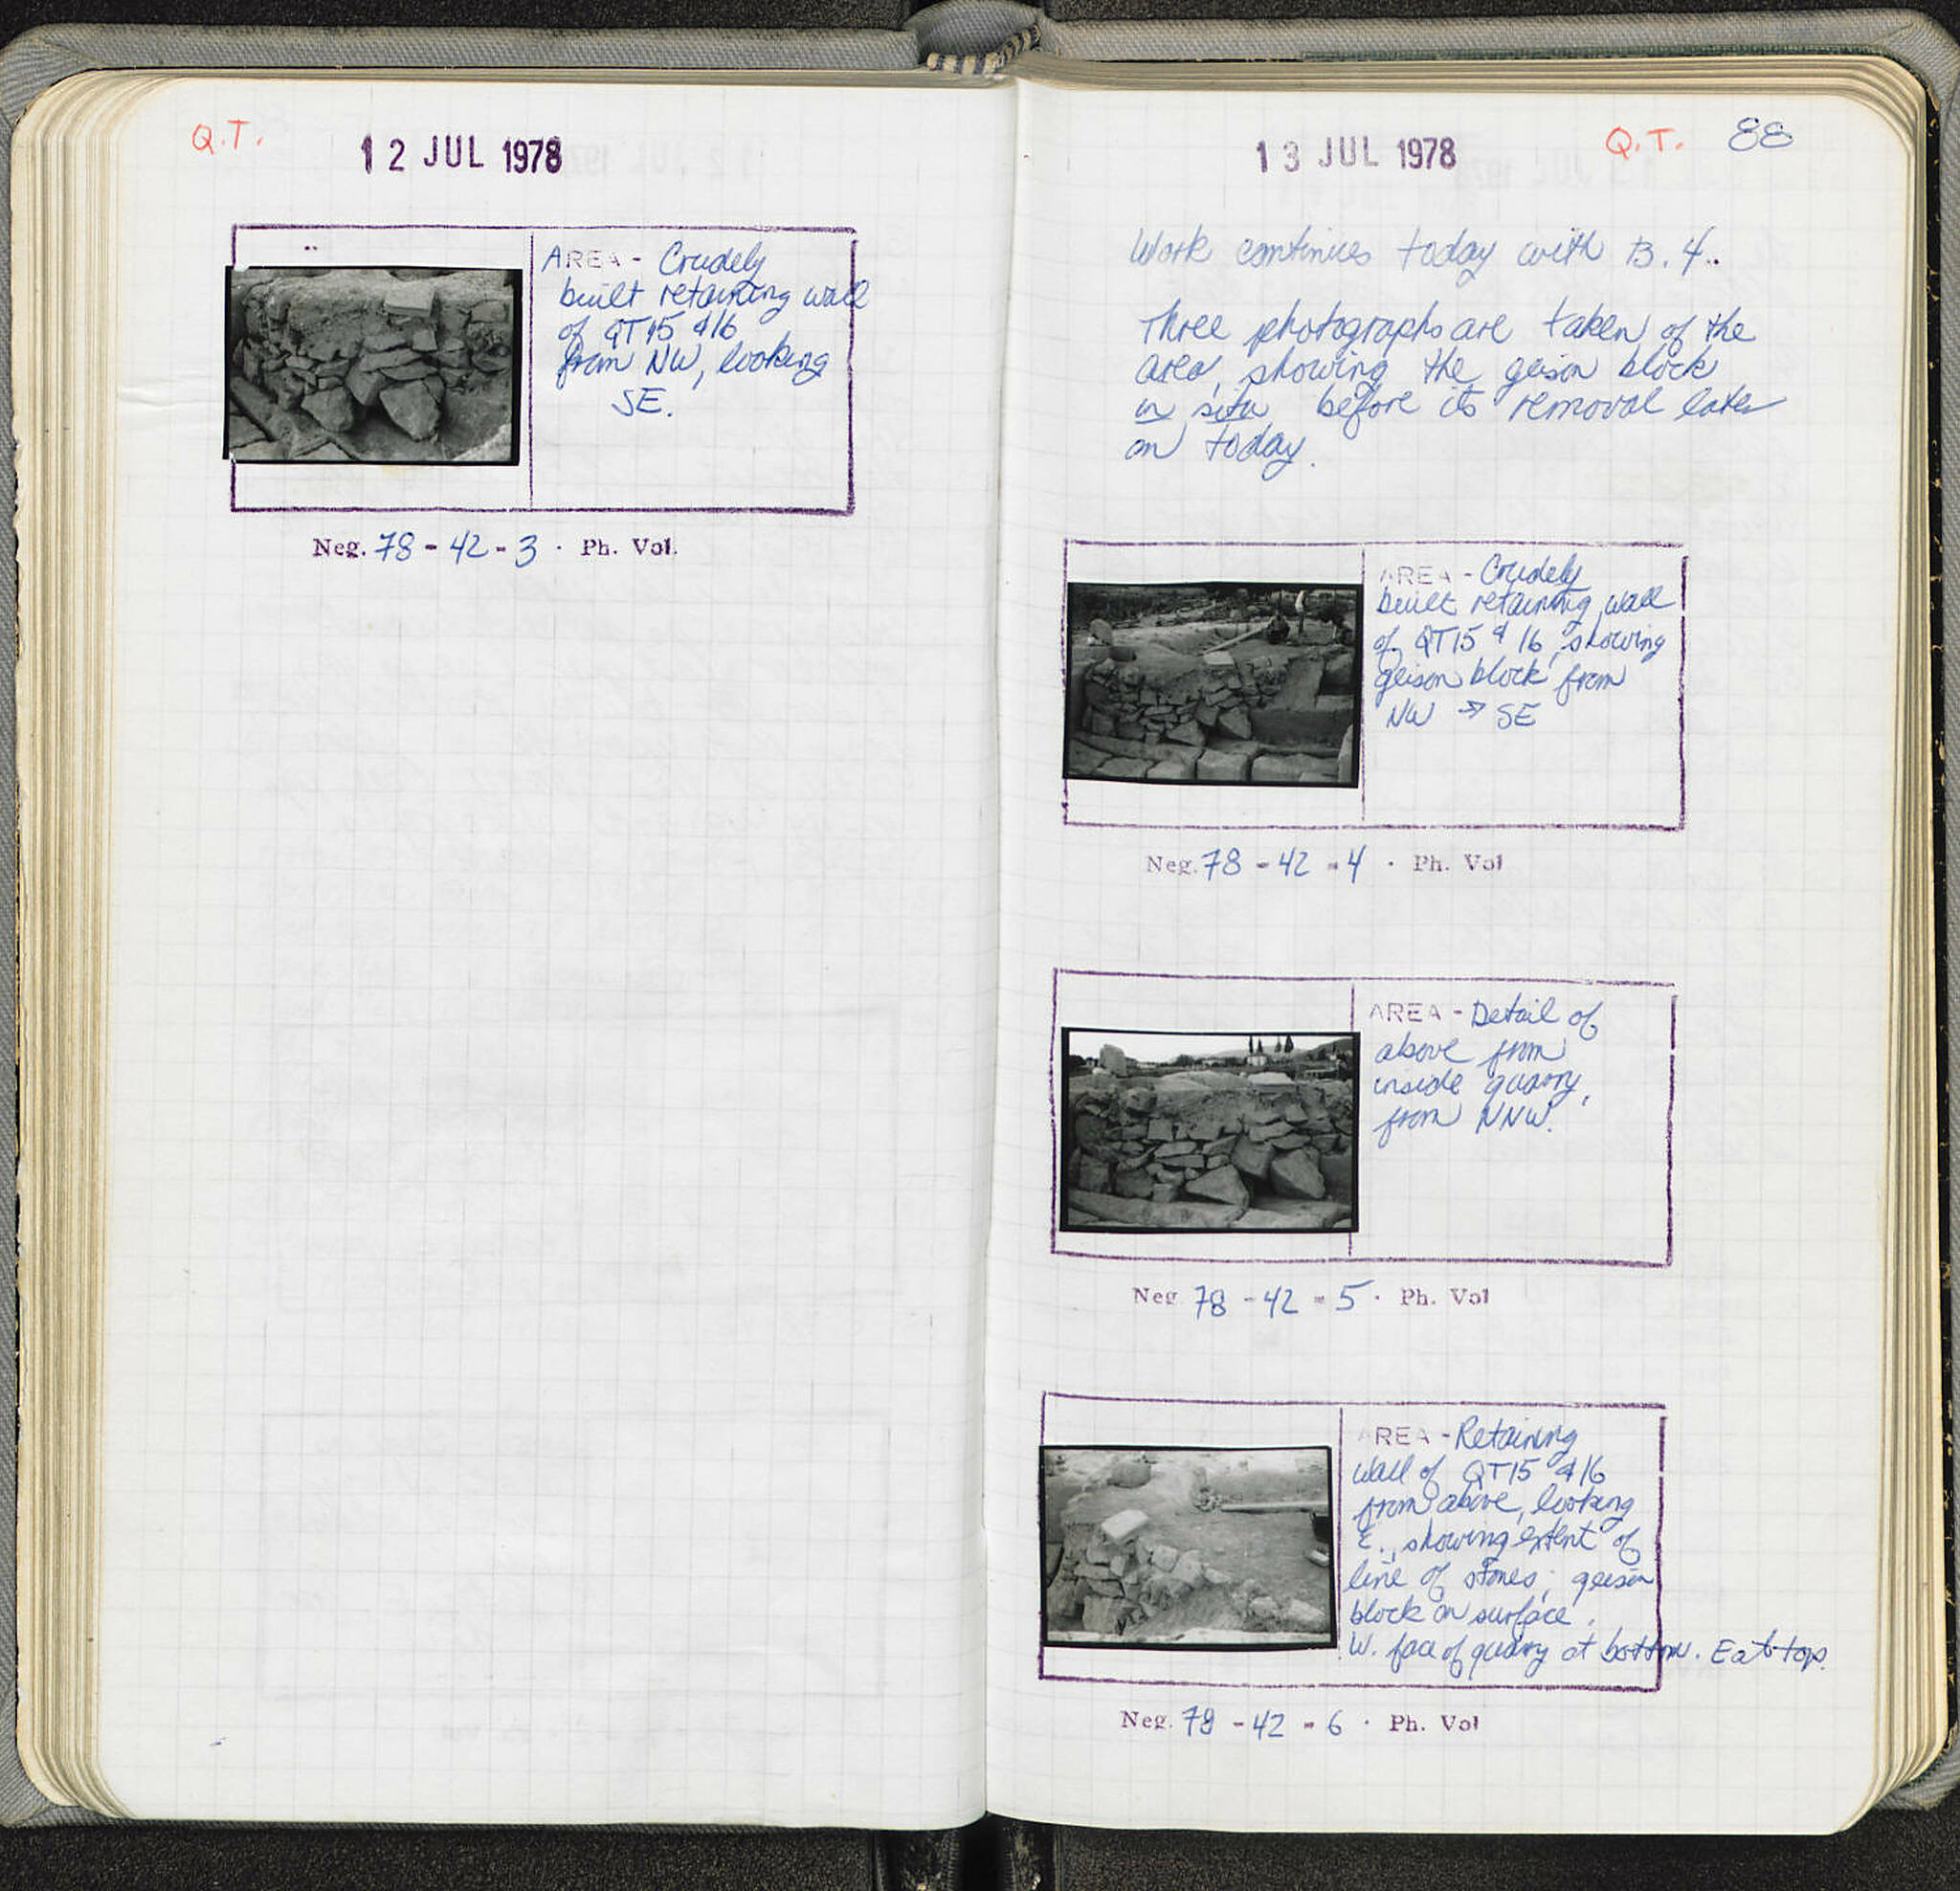 Q.T.
12 JUL 1978
AREA - Crudely
built retaining wall
of QT15 & 16
from NW, looking
SE.
Neg. 78 - 42 - 3 · Ph. Vol.
13 JUL 1978
Q.T. 88
Work continues today with B. 4..
Three photographs are taken of the
area, showing the geison block
in situ before its removal later
on today.
AREA - Crudely
built retaining wall
of QT15 & 16, showing
geison block from
NW → SE
Neg. 78 - 42 - 4 · Ph. Vol
AREA - Detail of
above from
inside quarry,
from NNW.
Neg 78 - 42 - 5 · Ph. Vol
AREA - Retaining
wall of QT15 & 16
from above, looking
E., showing extent of
line of stones; geison
block on surface.
W. face of quarry at bottom. E at top.
Neg. 78 - 42 - 6 · Ph. Vol